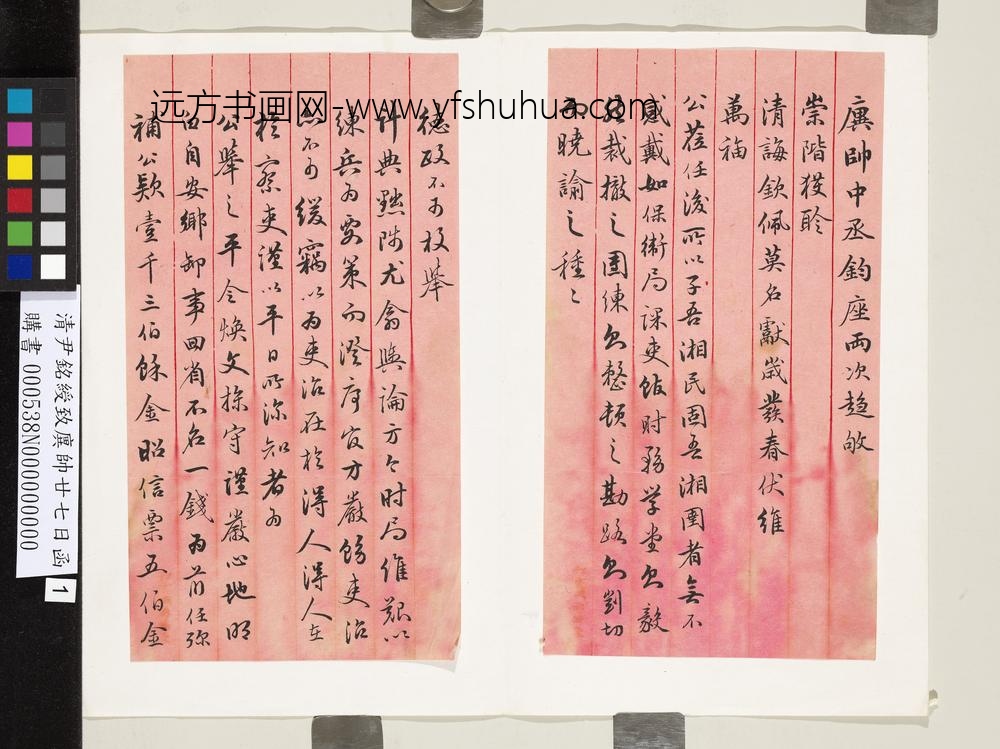 廙帥中丞鈞座兩次趨敂
崇階獲聆
清誨欽佩莫名獻歲發春伏維
萬福
公蒞任後所以子吾湘民固吾湘圉者無不
感戴如保衛局課吏館時務學堂無毅
裁撤之團練無整頓之勘路無剴切
曉諭之種々
德政不可枚舉
計典黜陟尤翕輿論方今時局維艱以
練兵為要策而澄序官方嚴飭吏治
不可緩竊以為吏治在於得人得人在
於察吏謹以平日所深知者為
公舉之平令煥文操守謹嚴心地明
白自安鄉卸事回省不名一錢為前任彌
補公款壹千三伯餘金昭信票五伯金
远方书画网-www.yfshuhua.com
清尹銘綬致廙帥廿七日函
購書 000538N000000000
1